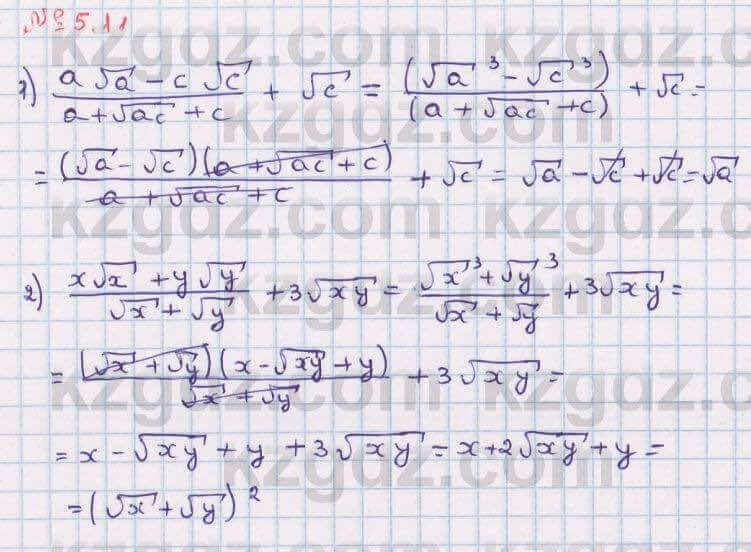 № 5.11
1) (a√a - c√c)/(a + √ac + c) + √c = (√a³ - √c³)/(a + √ac + c) + √c =
= (√a - √c)(a + √ac + c)/(a + √ac + c) + √c = √a - √c + √c = √a
2) (x√x + y√y)/(√x + √y) + 3√xy = (√x³ + √y³)/(√x + √y) + 3√xy =
= (√x + √y)(x - √xy + y)/(√x + √y) + 3√xy =
= x - √xy + y + 3√xy = x + 2√xy + y =
= (√x + √y)²
kzgdz.com